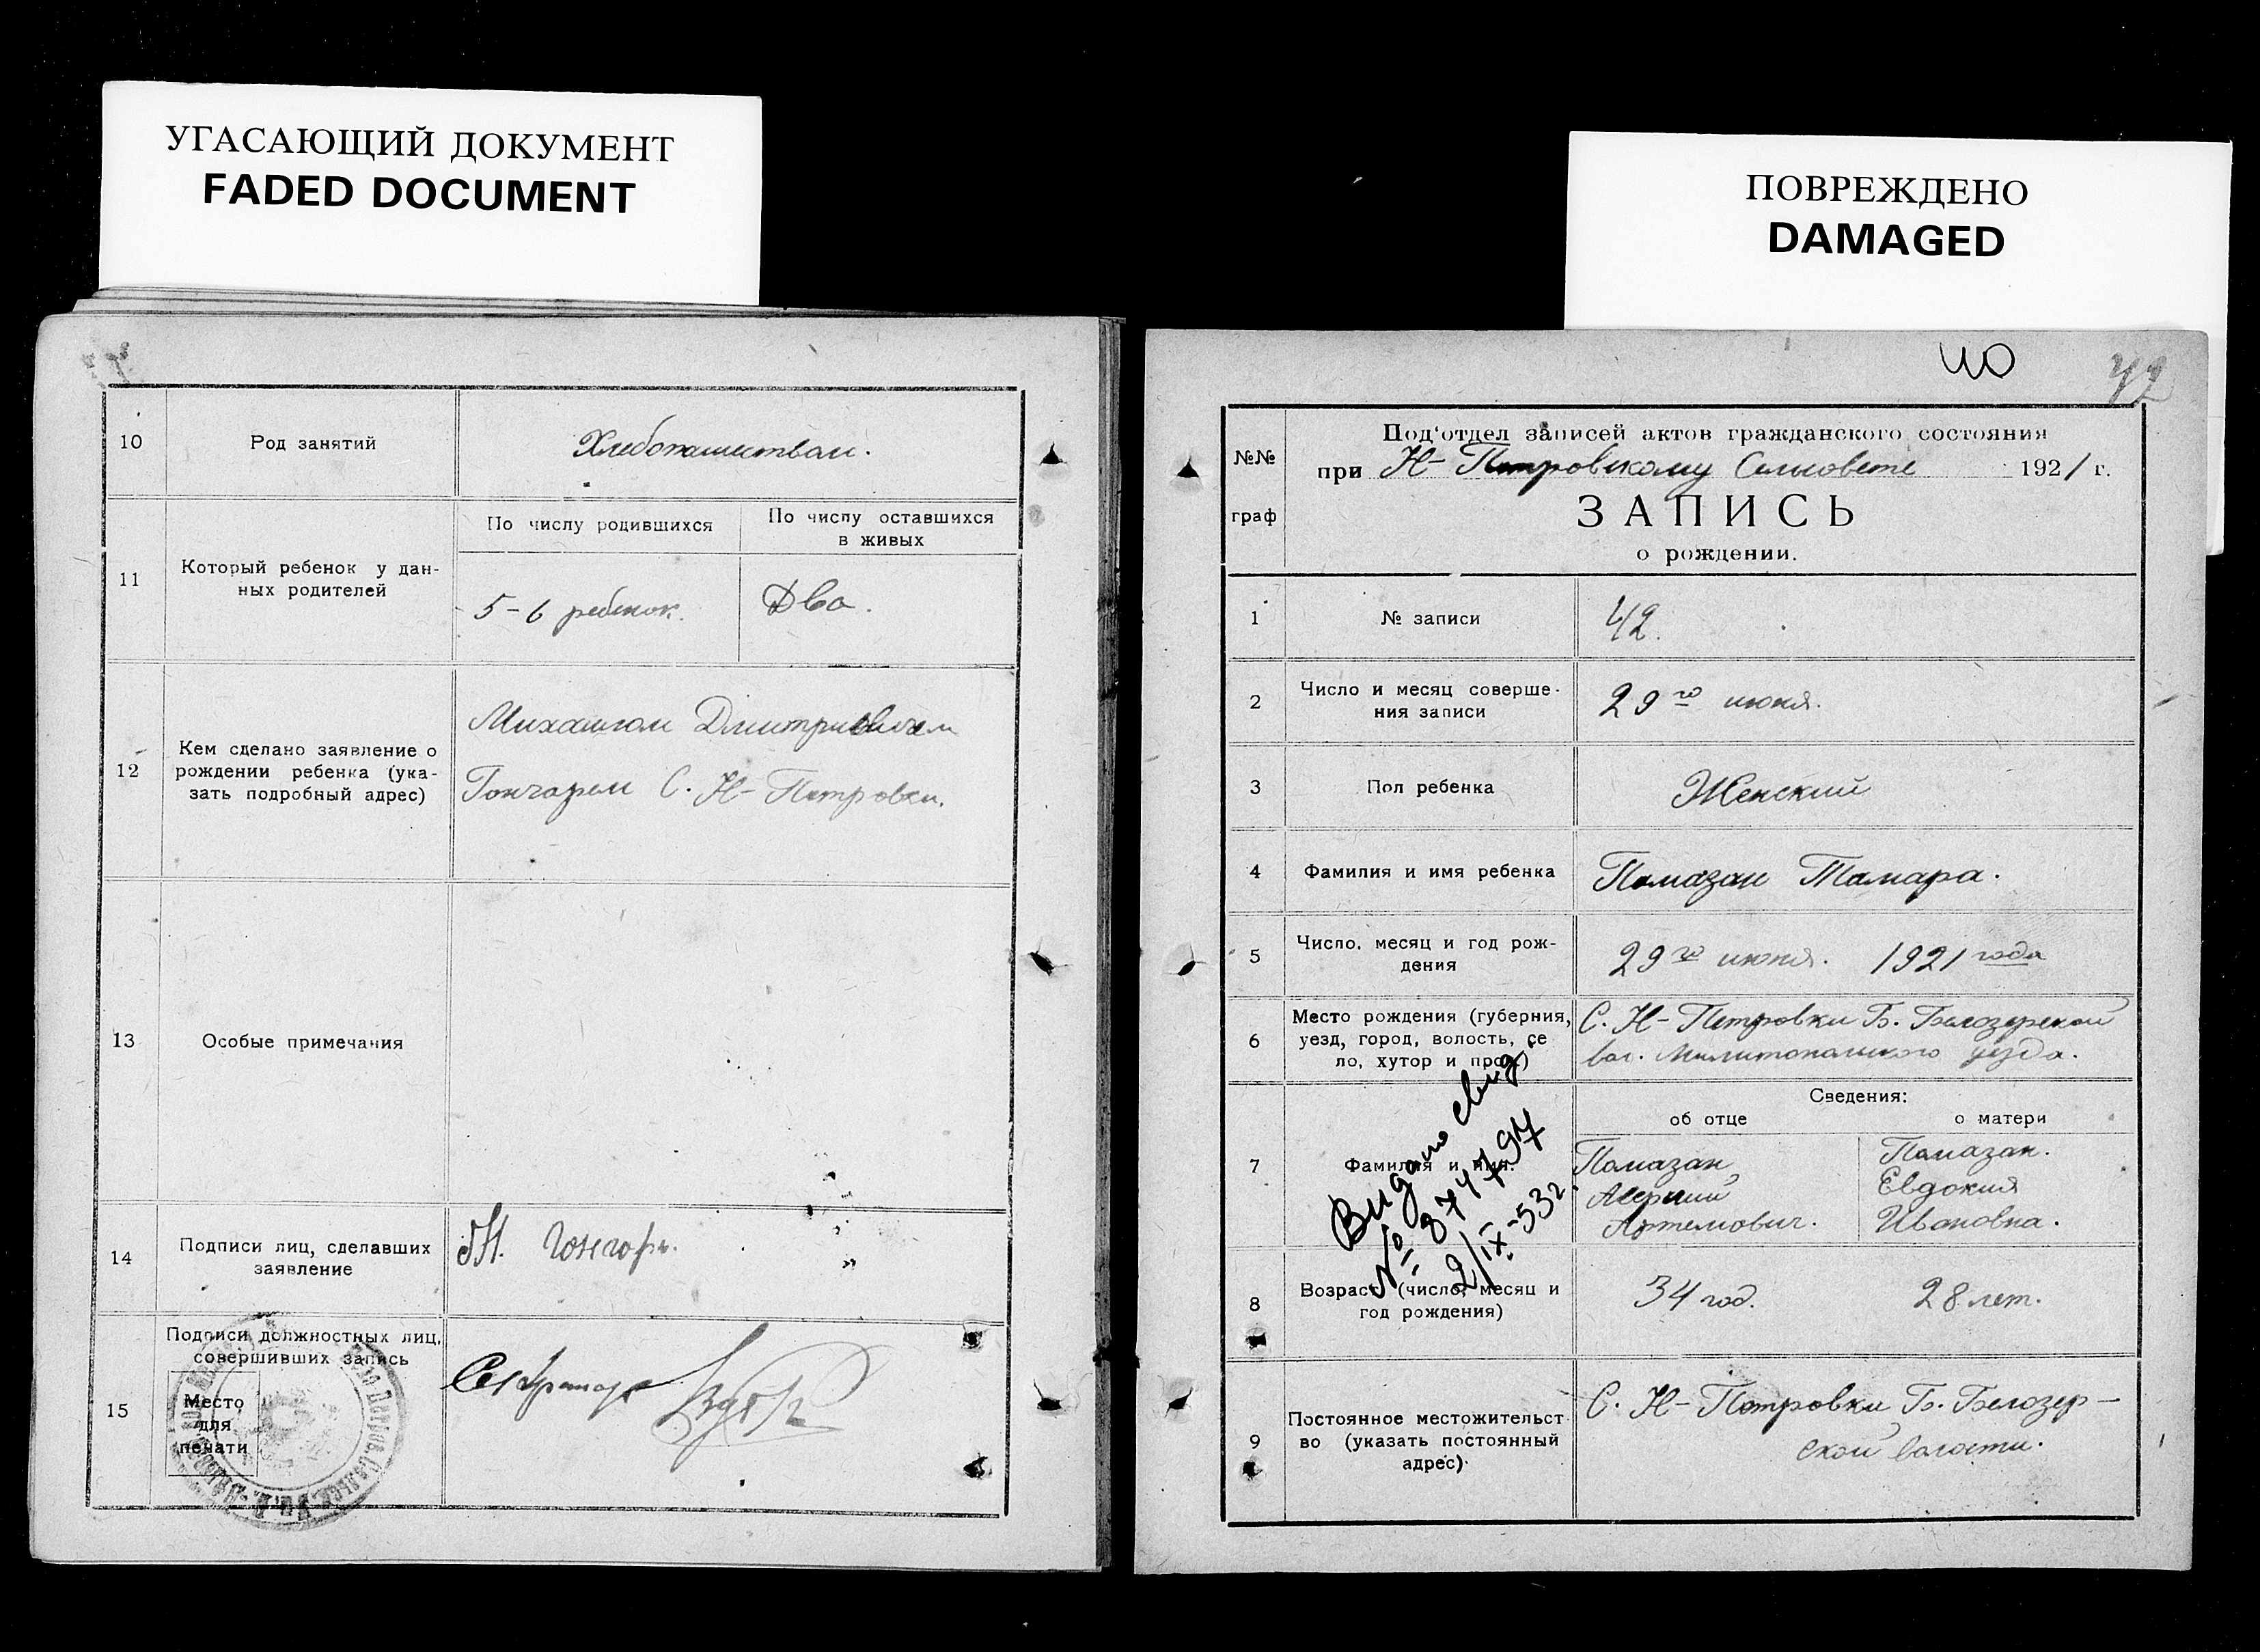 УГАСАЮЩИЙ ДОКУМЕНТ
FADED DOCUMENT
ПОВРЕЖДЕНО
DAMAGED
10
Род занятий
Хлебопашеством.
11
Который ребенок у дан-
ных родителей
По числу родившихся
По числу оставшихся
в живых
5-6 ребенок.
Два.
12
Кем сделано заявление о
рождении ребенка (ука-
зать подробный адрес)
Михаилом Дмитриевичем
Гончарем С. Н-Петровки.
13
Особые примечания
14
Подписи лиц, сделавших
заявление
М. Гончарь.
15
Подписи должностных лиц,
совершивших запись
Место
для
печати
Секретарь
40
42
№№
граф
Под'отдел записей актов гражданского состояния
при Н-Петровскому Сельсовете 1921 г.
ЗАПИСЬ
о рождении.
1
№ записи
42.
2
Число и месяц соверше-
ния записи
29го июня.
3
Пол ребенка
Женский
4
Фамилия и имя ребенка
Помазан Тамара.
5
Число, месяц и год рож-
дения
29го июня. 1921 года
6
Место рождения (губерния,
уезд, город, волость, се
ло, хутор и проч.)
С. Н-Петровки Б. Белозерской
вол. Мелитопольского уезда.
7
Фамилия и имя.
Сведения:
об отце
о матери
Помазан
Артемович.
Помазан.
Евдокия
Ивановна.
Видано свид
№ 874797
2/IX-53г.
8
Возраст (число, месяц и
год рождения)
34 год.
28 лет.
9
Постоянное местожительст
во (указать постоянный
адрес)
С. Н-Петровки Б. Белозер-
ской волости.